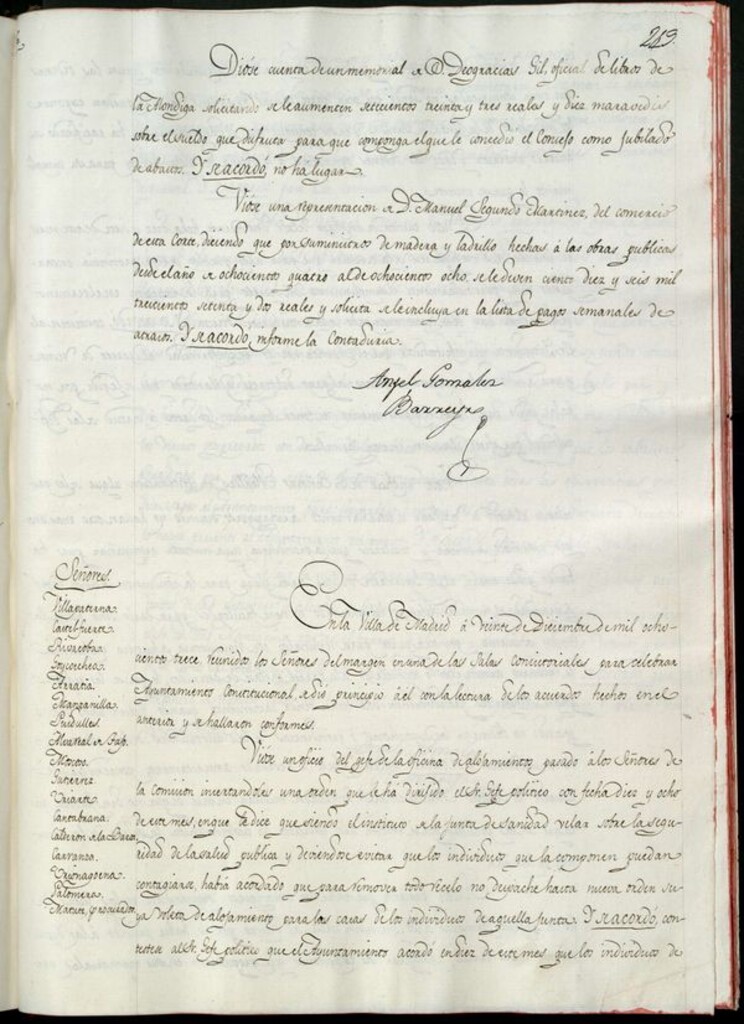 213.
Dióse cuenta de un memorial de D. Deogracias Gil, oficial de libros de
la Alondiga solicitando se le aumenten setecientos treinta y tres reales y diez maravedis
sobre el sueldo que disfruta para que componga el que le concedió el Consejo como Jubilado
de abastos. Y se acordó, no há lugar.
Vióse una representacion de D. Manuel Segundo Martinez, del comercio
de esta Corte, diciendo que por suministros de madera y ladrillo hechas á las obras publicas
desde el año de ochocientos quatro al de ochocientos ocho, se le deven ciento diez y seis mil
trescientos setenta y dos reales y solicita se le incluya en la lista de pagos semanales de
atrasos. Y se acordó, informe la Contaduria.
Angel Gonzalez
Barreyro
Señores.
Villapaterna.
Castel-fuerte.
Goycoechea.
Arratia.
Manzanilla.
Monreal de
Moscoso.
Gutierrez.
Uriarte.
Cantabrana.
Calderon de la Barca.
Carranza.
Urionagoena.
Palomera.
Matute, procurador.
En la Villa de Madrid á veinte de Diciembre de mil ocho-
cientos trece, reunidos los Señores del margen en una de las Salas Consistoriales para celebrar
Ayuntamiento Constitucional, se dió principio á él con la lectura de los acuerdos hechos en el
anterior y se hallaron conformes.
Vióse un oficio del gefe de la oficina de alojamientos pasado á los Señores de
la Comision insertandoles una orden que le há dirigido el Sr. Gefe politico con fecha diez y ocho
de este mes, en que le dice que siendo el instituto de la junta de sanidad velar sobre la segu-
ridad de la salud publica y deviendose evitar que los individuos que la componen puedan
contagiarse, habia acordado que para remover todo recelo no despache hasta nueva orden su-
ya voleta de alojamiento para las casas de los individuos de aquella junta. Y se acordó, con-
testese al Sr. Gefe politico que el Ayuntamiento acordó en diez de este mes que los individuos de